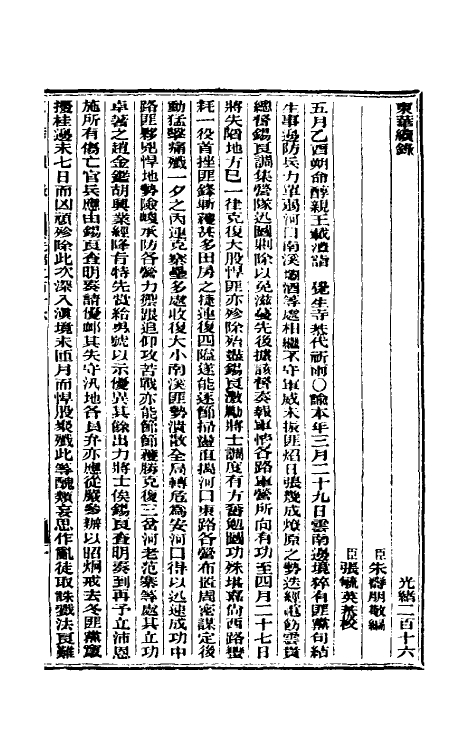 東華續錄
光緒二百十六
臣朱壽朋敬編
臣張毓英恭校
五月乙酉朔命醇親王載灃詣 覺生寺恭代祈雨〇諭本年三月二十九日雲南邊境猝有匪黨句結
生事邊防兵力單弱河口南溪壩洒等處相繼不守軍威未振匪焰日張幾成燎原之勢迭經電飭雲貴
總督錫良調集營隊迅圖剿除以免滋蔓先後據該督奏報軍情各路軍營所向有功至四月二十七日
將失陷地方已一律克復大股悍匪亦殄除殆盡錫良激勵將士調度有方奮勉圖功殊堪嘉尚西路蠻
耗一役首挫匪鋒斬獲甚多田房之捷連復四隘遂能逐節掃盪直搗河口東路各營布置周密謀定後
動猛擊痛殲一夕之內連克寨壘多處收復大小南溪匪勢潰散全局轉危為安河口得以迅速成功中
路匪夥兇悍地勢險峻承防各營力禦跟追仰攻苦戰亦能節節獲勝克復三岔河老范寨等處其立功
卓著之趙金鑑胡興業經降旨特先賞給勇號以示優異其餘出力將士俟錫良查明奏到再予立沛恩
施所有傷亡官兵應由錫良查明奏請優卹其失守汛地各員弁亦應從嚴參辦以昭炯戒去冬匪黨竄
擾桂邊未七日而凶頑殄除此次深入滇境未匝月而悍股聚殲此等醜類妄思作亂徒取誅戮法良難